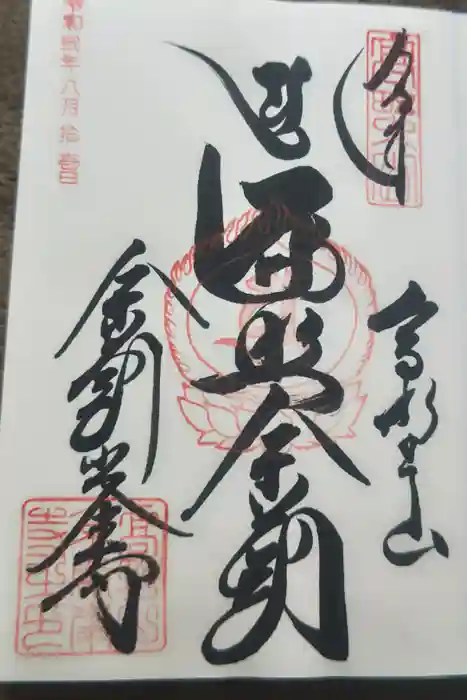 奉拝
高野山
遍照金剛
金剛峯寺
令和弐年八月拾壱日